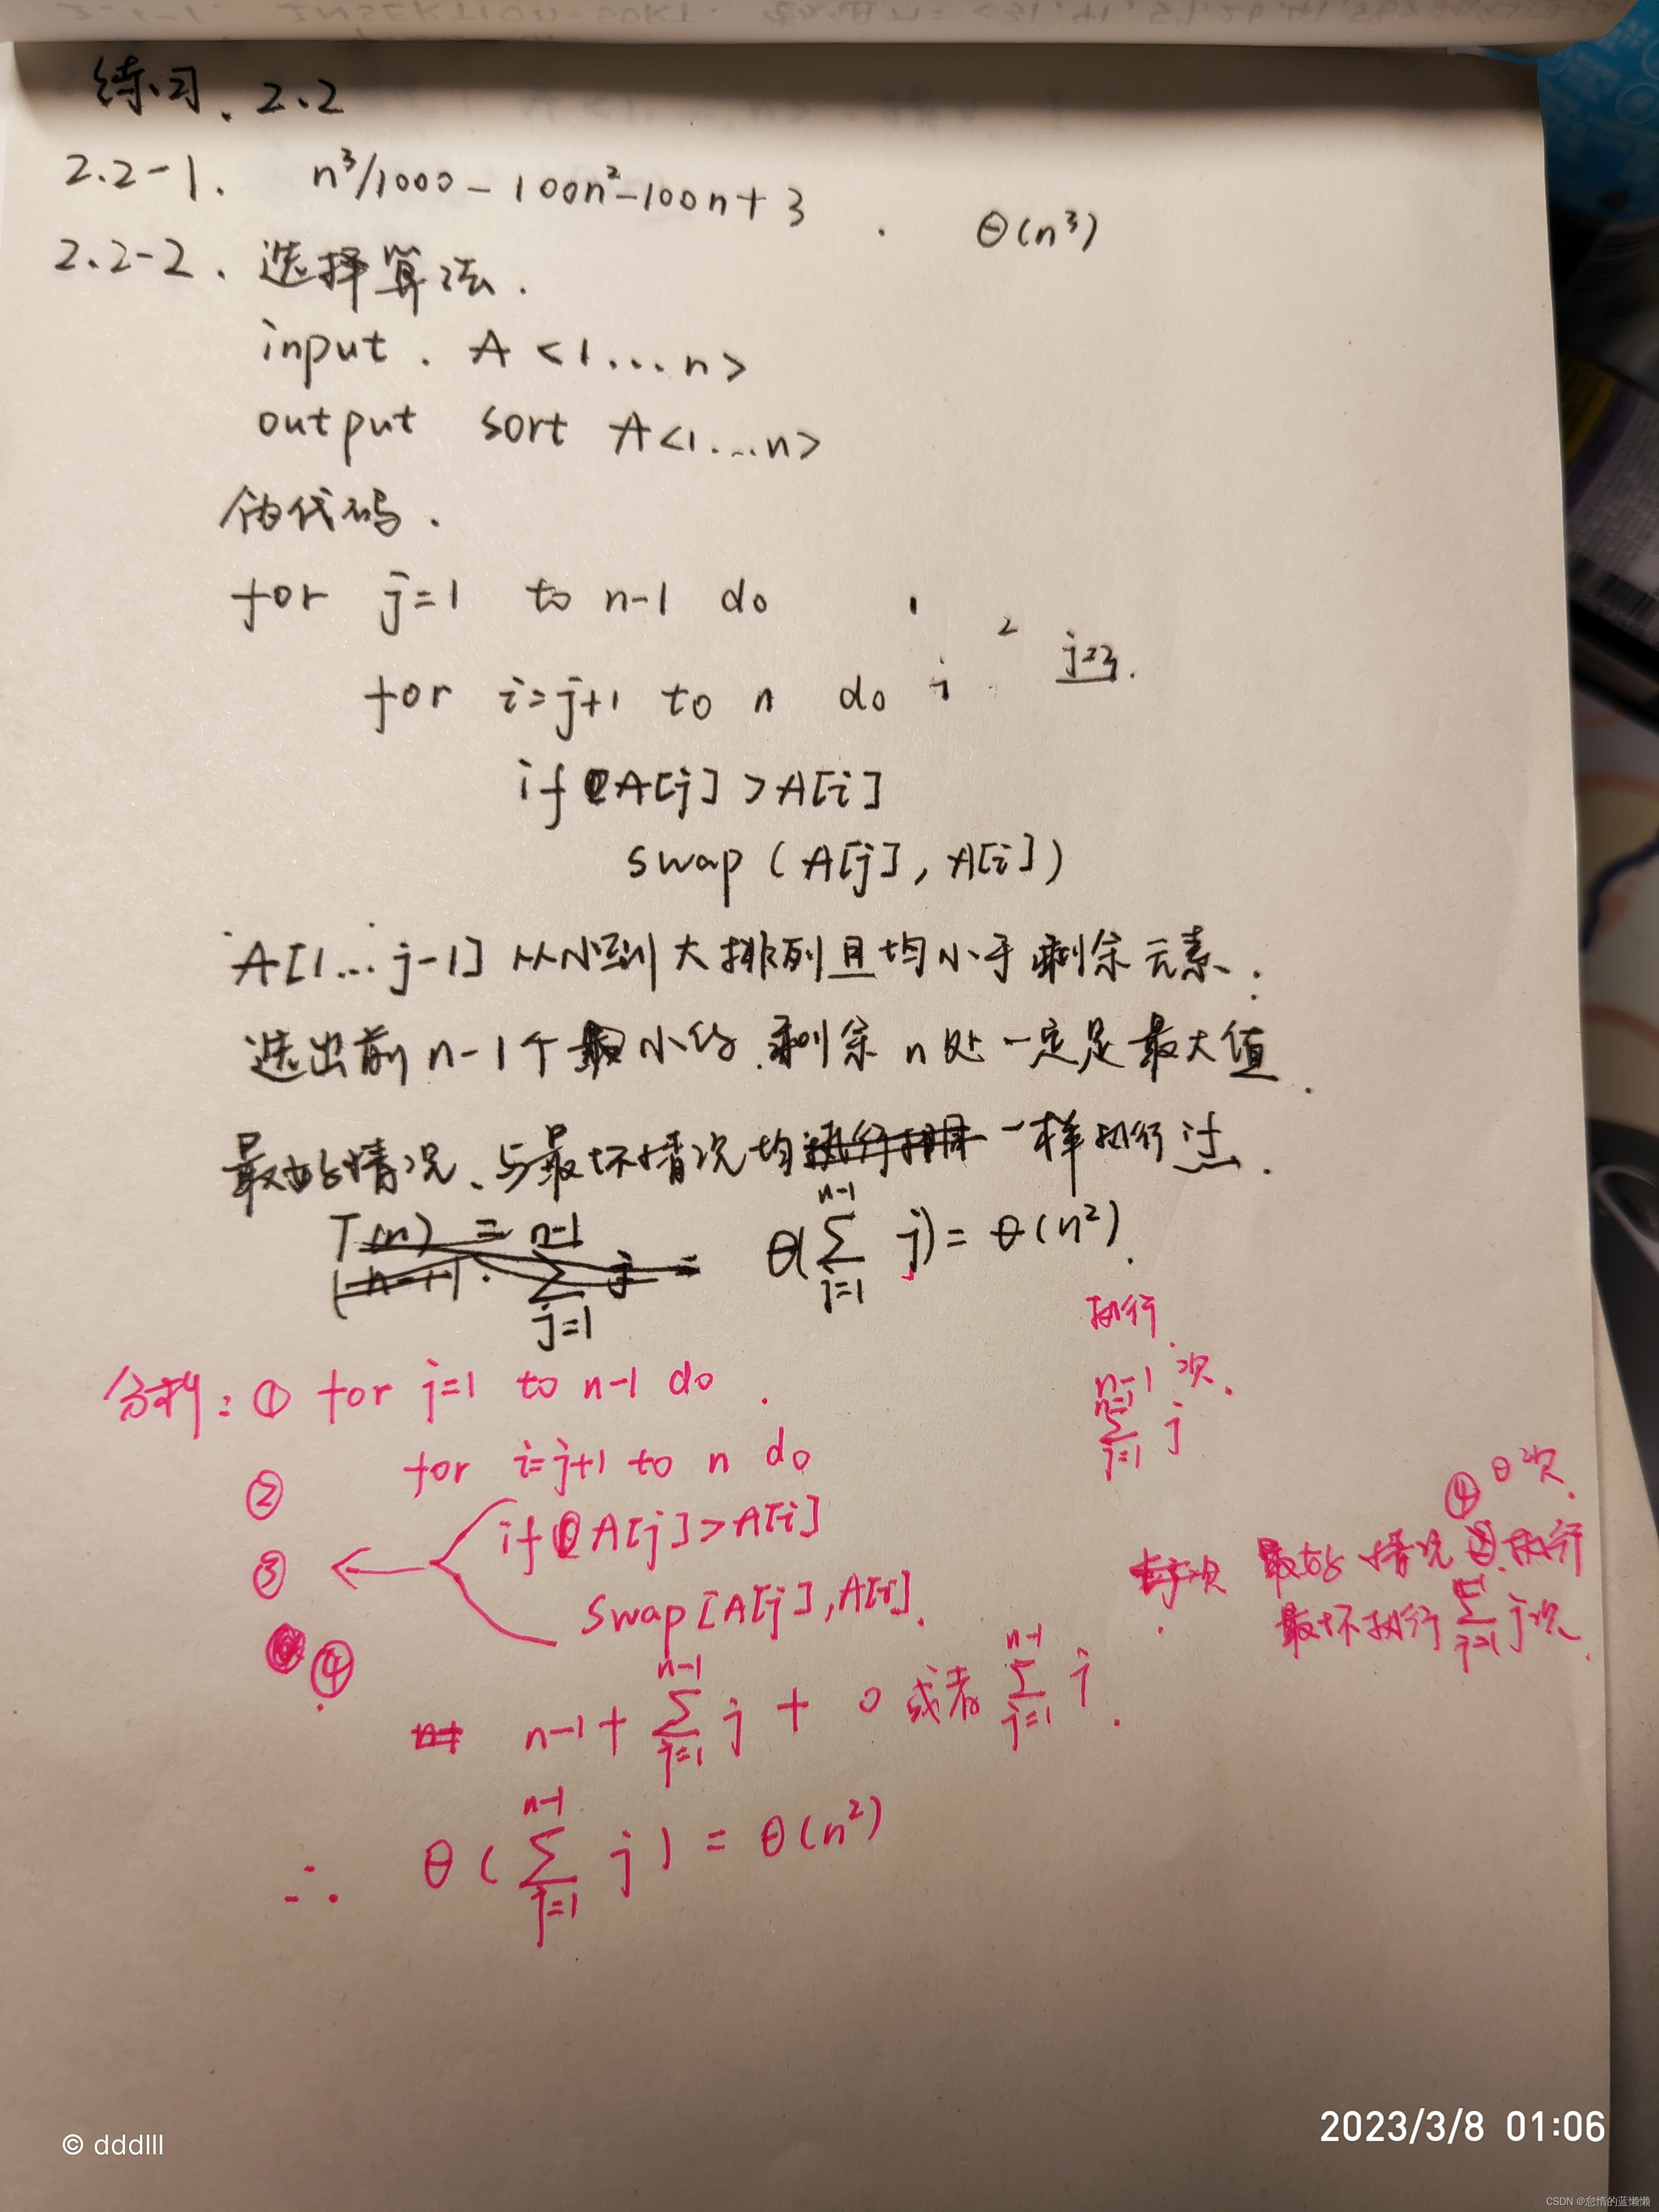 练习. 2.2
2.2-1. n³/1000 - 100n² - 100n + 3 . Θ(n³)
2.2-2. 选择算法.
input . A <1...n>
output sort A<1...n>
伪代码.
for j=1 to n-1 do
2 j=3.
for i=j+1 to n do i
if A[j] > A[i]
swap (A[j], A[i])
A[1... j-1] 从小到大排列且均小于剩余元素.
选出前 n-1个最小的.剩余 n处一定是最大值.
最好情况、与最坏情况均一样执行过.
T(n) = n-1
Θ(∑_{j=1}^{n-1} j) = Θ(n²).
∑_{j=1} j =
执行.
分析: ① for j=1 to n-1 do . n-1 次.
② for i=j+1 to n do ∑_{j=1}^{n-1} j
④ 0次.
③ if A[j]>A[i] 最好情况 执行
swap[A[j],A[i]]. 最坏执行 ∑_{j=1}^{n-1} j次.
④
n-1 + ∑_{j=1}^{n-1} j + 0 或者 ∑_{j=1}^{n-1} j.
∴ Θ(∑_{j=1}^{n-1} j) = Θ(n²)
2023/3/8 01:06
© dddlll
CSDN @怠惰的蓝懒懒